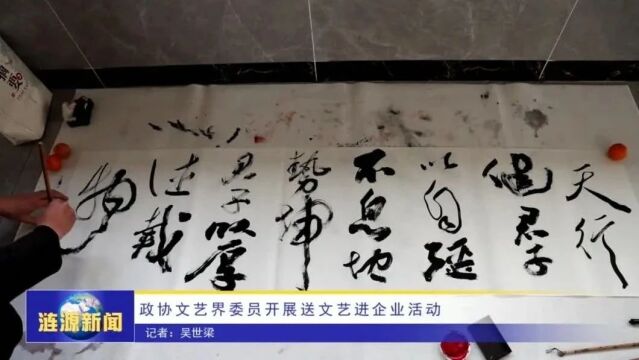 天行
健君子
以自强
不息地
勢坤
君子以厚
德載
物
政协文艺界委员开展送文艺进企业活动
涟源新闻
记者：吴世梁